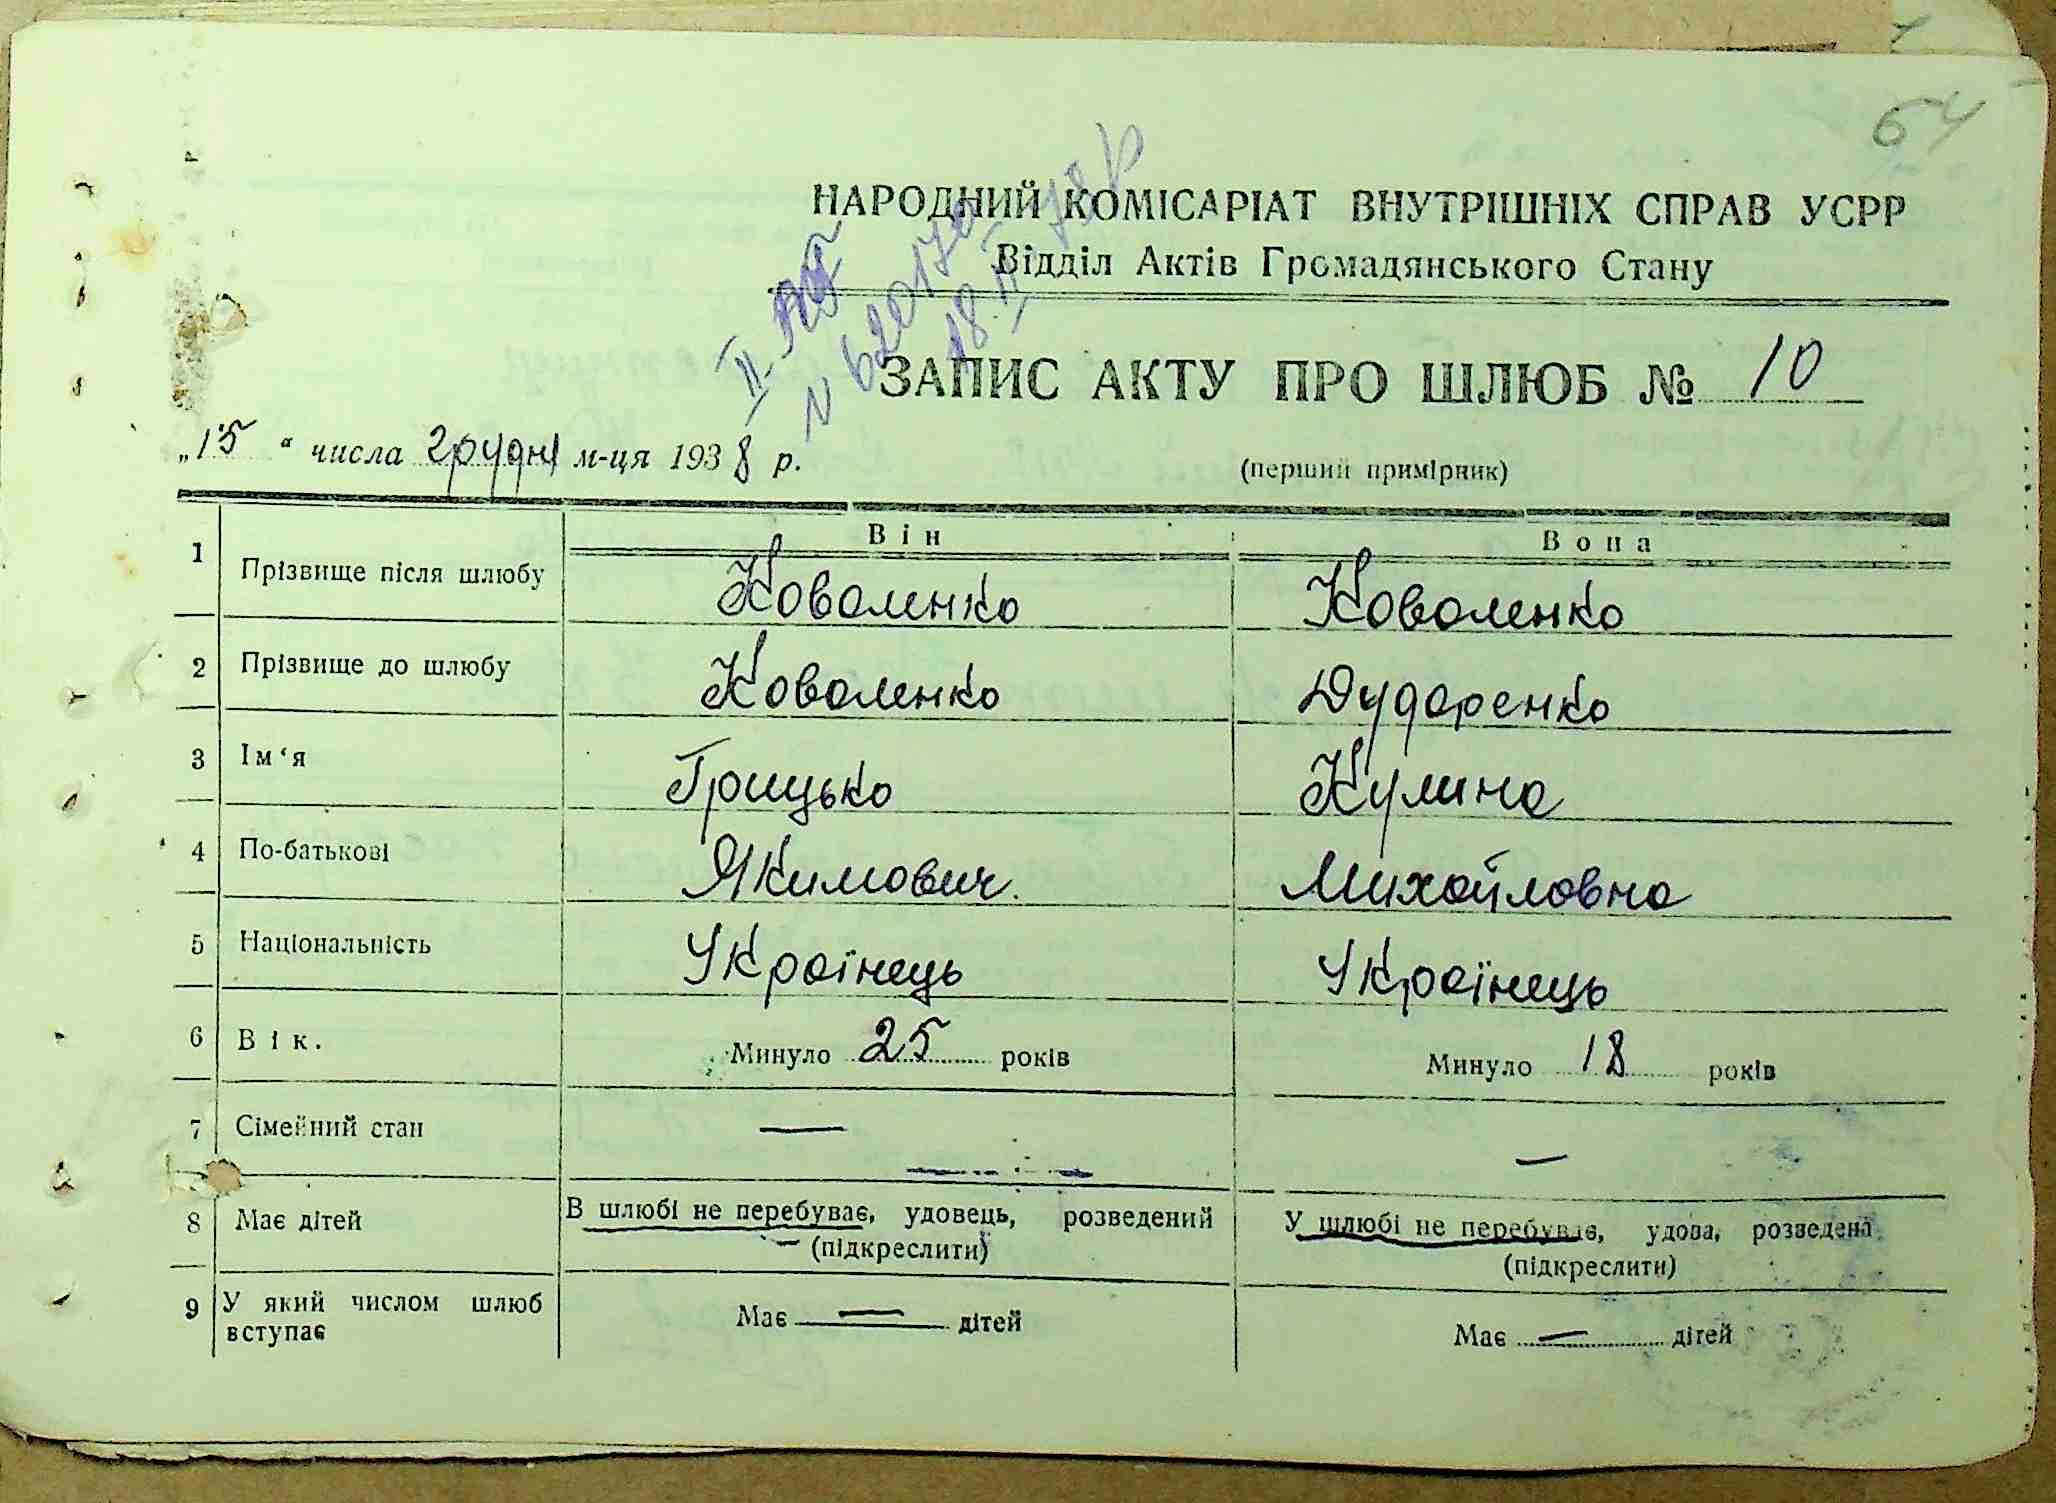 64
НАРОДНИЙ КОМІСАРІАТ ВНУТРІШНІХ СПРАВ УСРР
Відділ Актів Громадянського Стану
II
N 620170
18 II 78 р
ЗАПИС АКТУ ПРО ШЛЮБ № 10
„15“ числа грудня м-ця 1938 р.
(перший примірник)
Він Вона
1 Прізвище після шлюбу Коваленко Коваленко
2 Прізвище до шлюбу Коваленко Дударенко
3 Ім‘я Грицько Кулина
4 По-батькові Якимович. Михайловна
5 Національність Українець Українець
6 Вік. Минуло 25 років Минуло 18 років
7 Сімейний стан — —
8 Має дітей В шлюбі не перебуває, удовець, розведений У шлюбі не перебуває, удова, розведена
(підкреслити) (підкреслити)
9 У який числом шлюб вступає Має — дітей Має — дітей